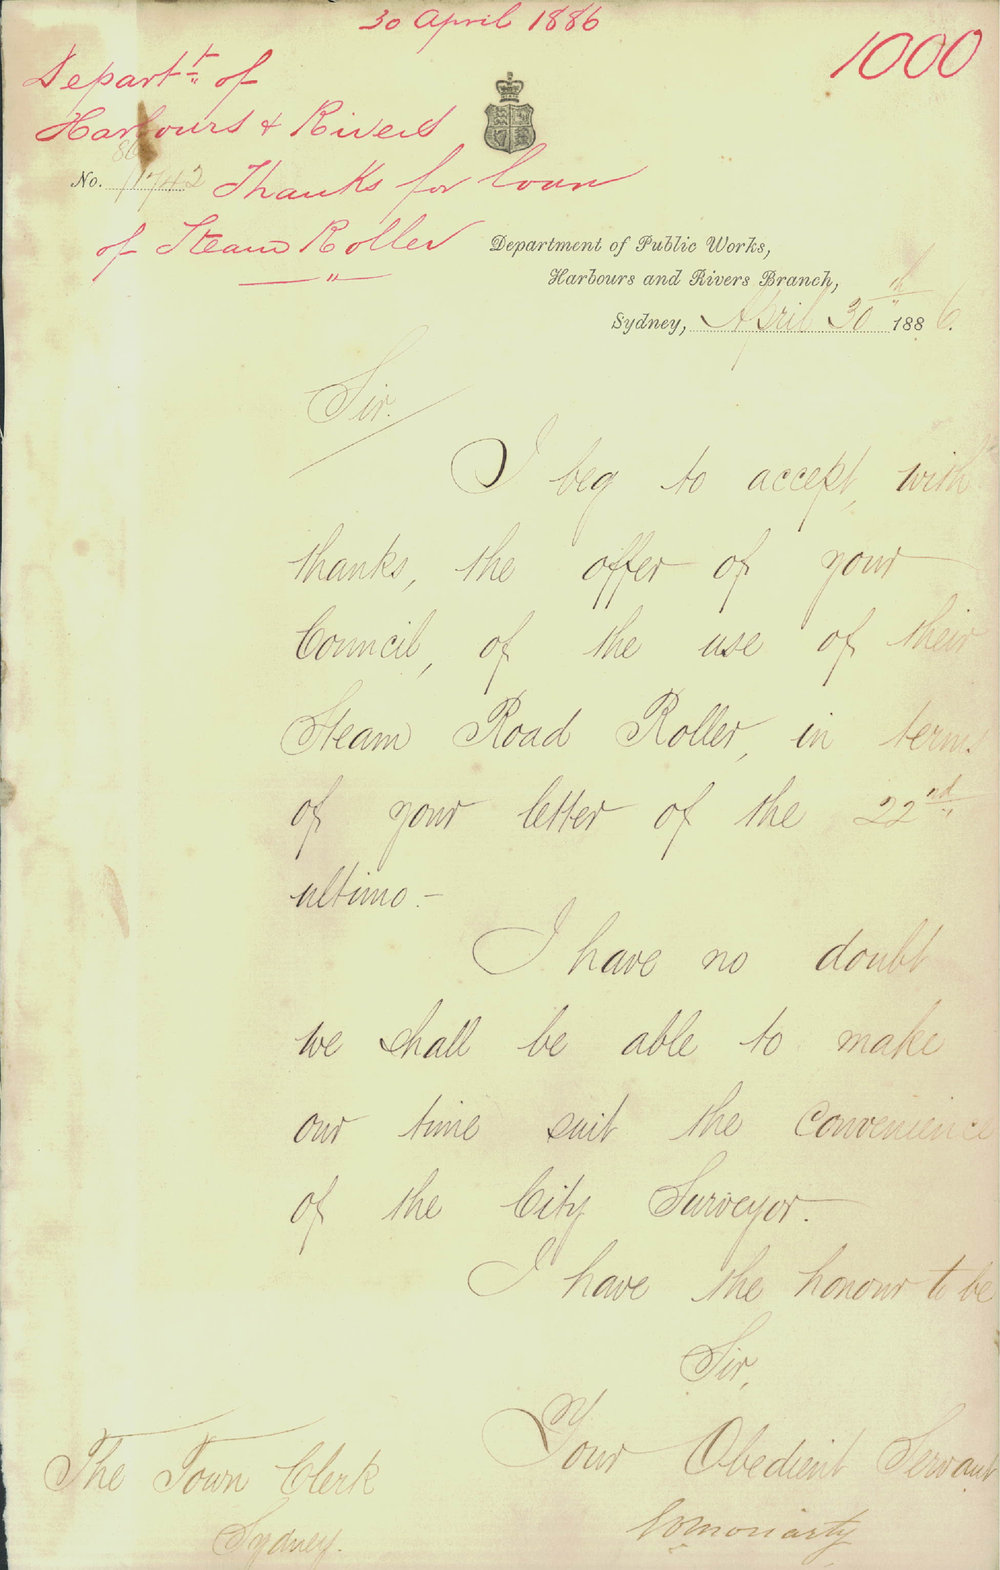 30 April 1886
1000
Departt. of
Harbours & Rivers
86
No. 1742
Thanks for loan
of Steam Roller
Department of Public Works,
Harbours and Rivers Branch,
Sydney, April 30th 1886.
Sir.
I beg to accept, with
thanks, the offer of your
Council, of the use of their
Steam Road Roller, in terms
of your letter of the 22nd
ultimo.-
I have no doubt
we shall be able to make
our time suit the convenience
of the City Surveyor.
I have the honour to be
Sir,
Your Obedient Servant
Moriarty
The Town Clerk
Sydney.